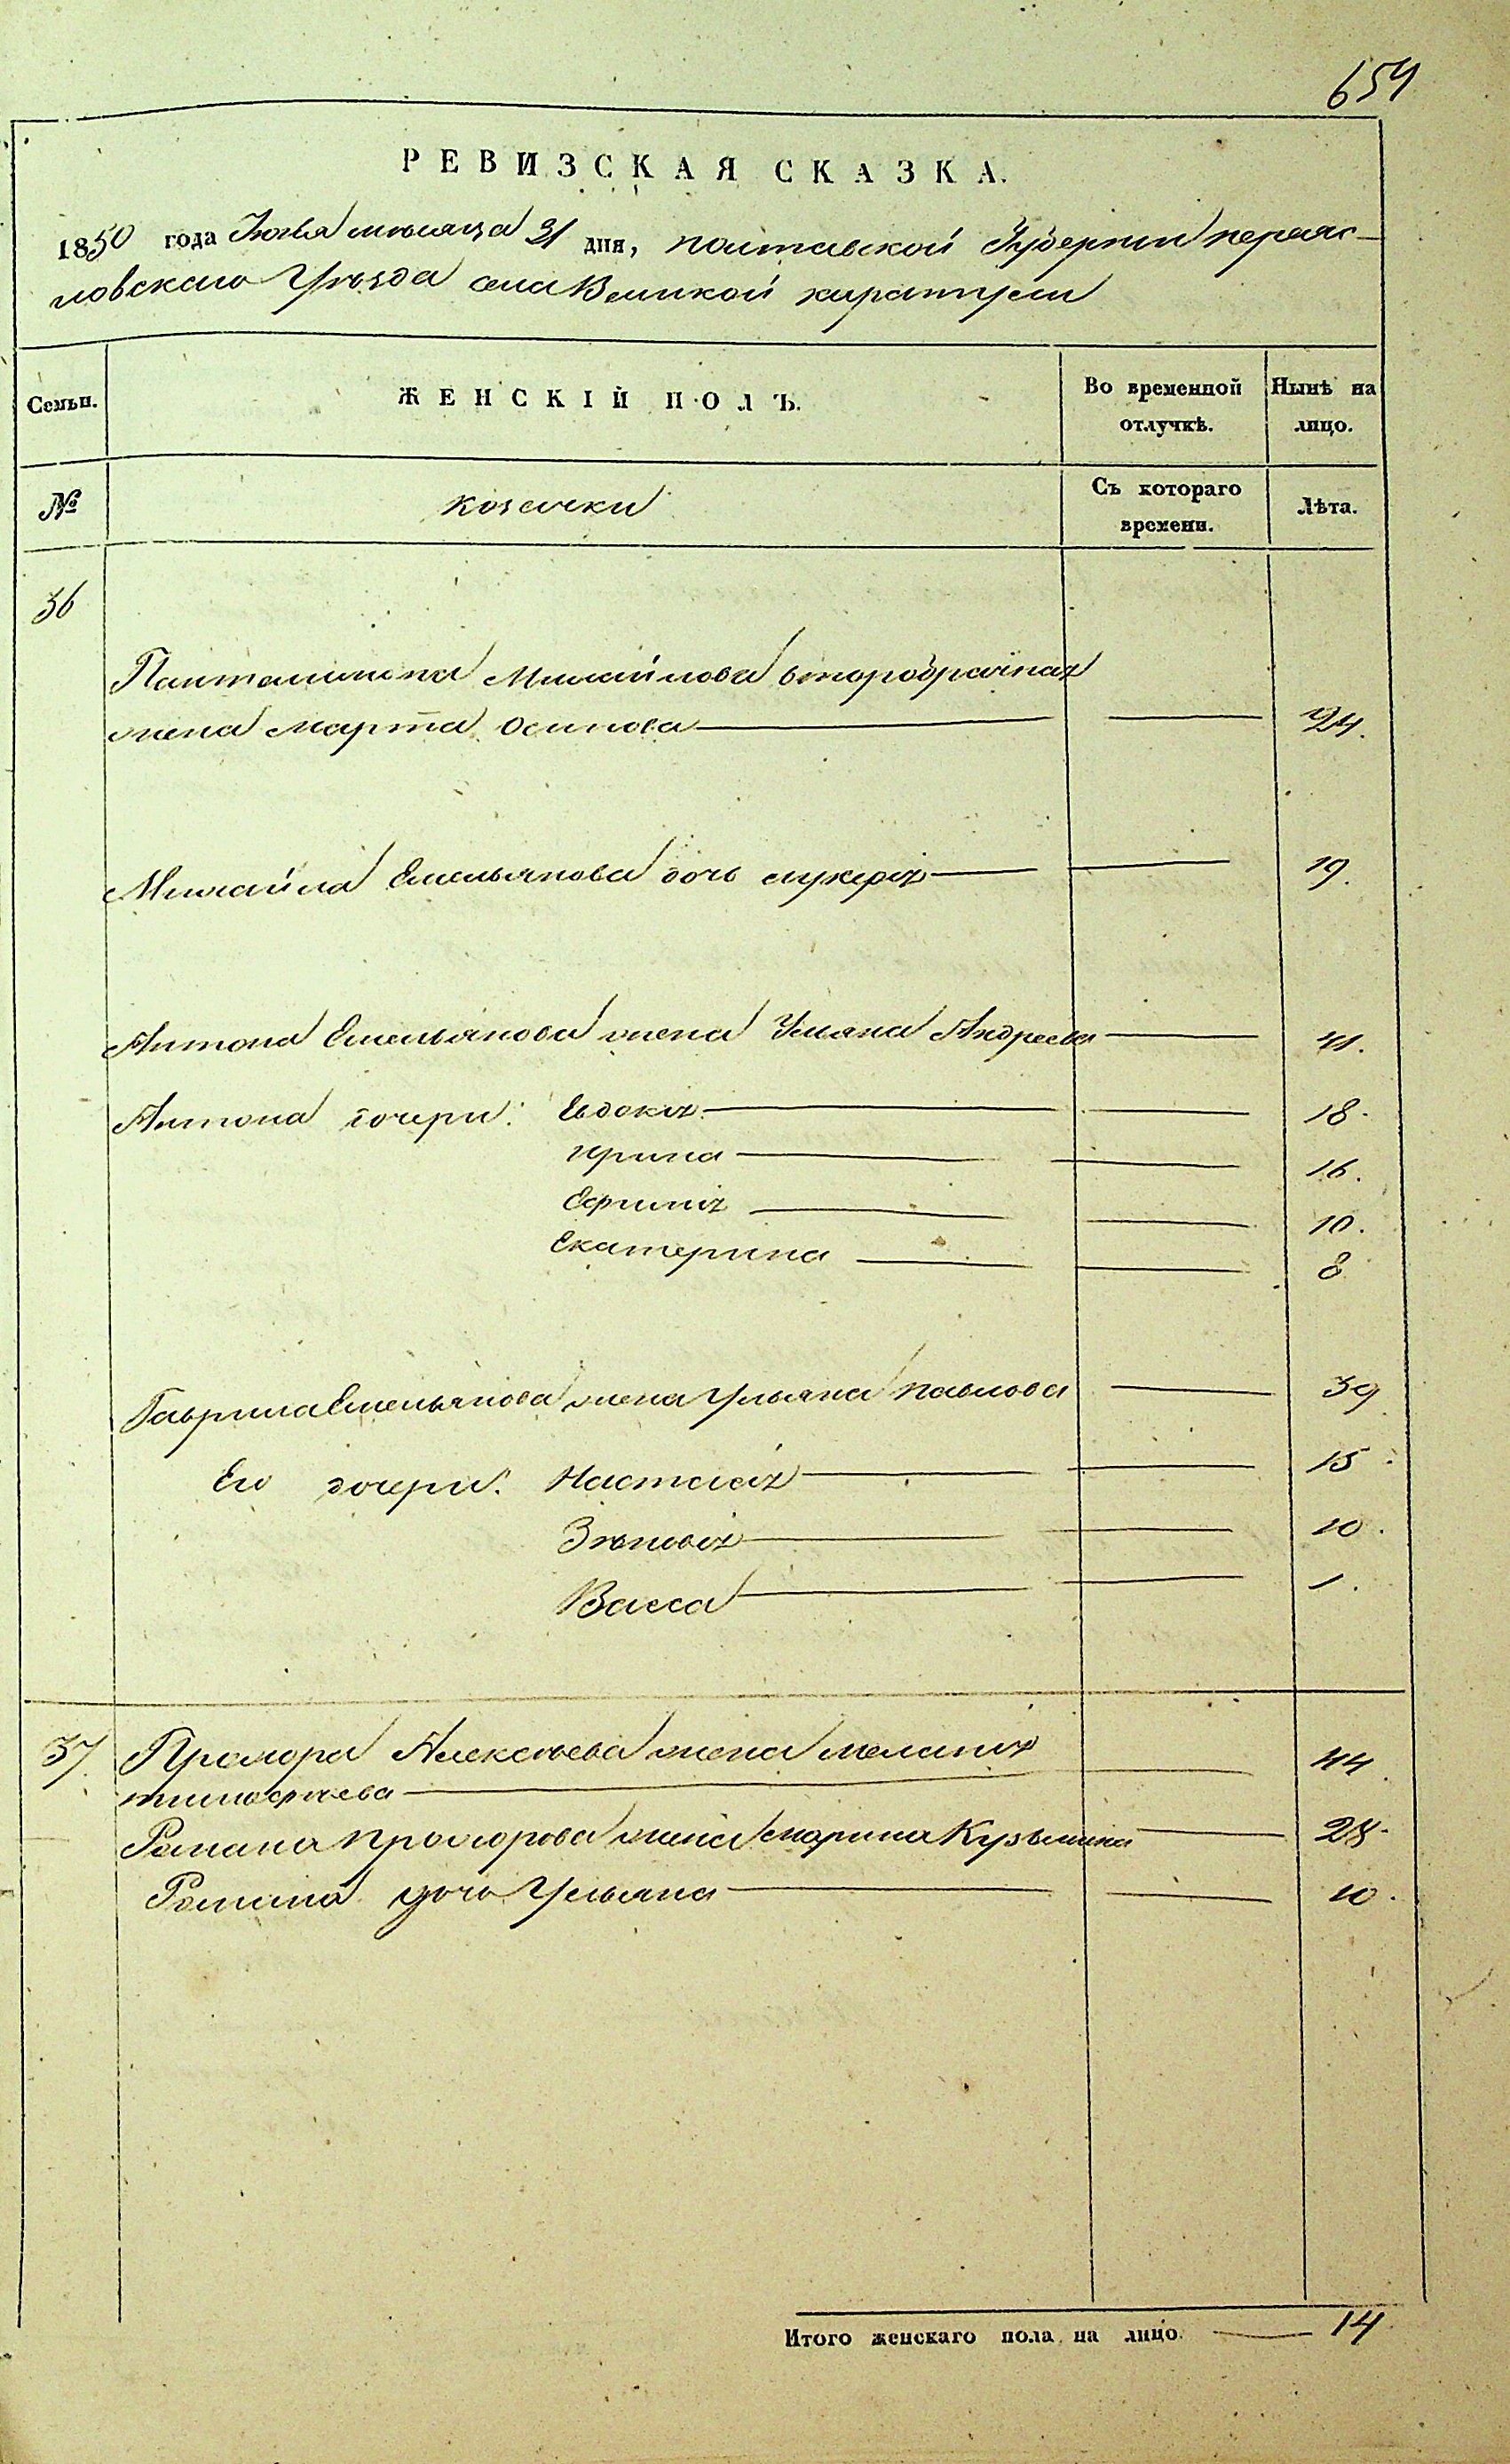 654
РЕВИЗСКАЯ СКАЗКА.
1850 года Іюля мѣсяца 31 дня, полтавской Губерніи переяс-
ловскаго Уѣзда села Великой каратули
Семьи. ЖЕНСКІЙ ПОЛЪ. Во временной отлучкѣ. Нынѣ на лицо.
№ козачки Съ котораго времени. Лѣта.
36
Пантелимона Михайлова второбрачная
жена марта осипова 24.
Михайла Емельянова дочь лукерія 19.
Антона Емельянова жена Ульяна Андреева 41.
Антона дочери: Евдокія 18.
ирина 16.
Ефимія 10.
Екатерина 8
Гаврила Емельянова жена Ульяна павлова 39
Его дочери: Настасія 15
Зѣновія 10.
Васса 1.
37. Прохора Алексѣева жена меланія 44
тимофѣева
Романа прохорова жена марина Кузьмина 28.
Романа дочь Ульяна 10.
Итого женскаго пола на лицо. 14